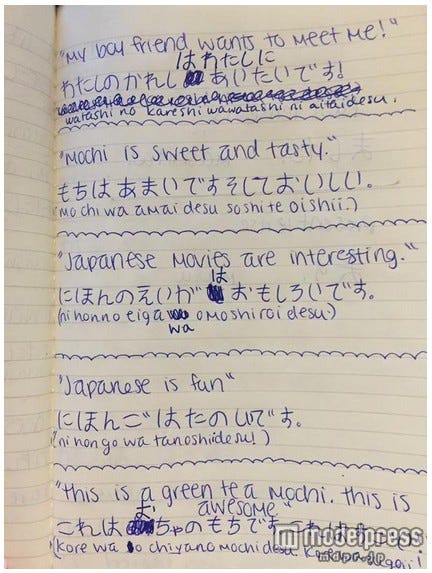 "My boy friend wants to meet me!"
はわたしに
わたしのかれし あいたいです!
watashi no kareshi wawatashi ni aitaidesu.
"Mochi is sweet and tasty."
もちは あまいですそしておいしい。
(mo chi wa amai desu soshite oishii.)
"Japanese movies are interesting."
は
にほんのえいが おもしろいです。
(ni honno eiga omoshiroi desu.)
wa
"Japanese is fun"
にほんご はたのしいです。
(ni hon go wa tanoshidesu!)
"This is a green tea mochi. this is
お awesome"
これは ちゃのもちです
(kore wa o chiyano mochi desu
modelpress
mdpr.jp